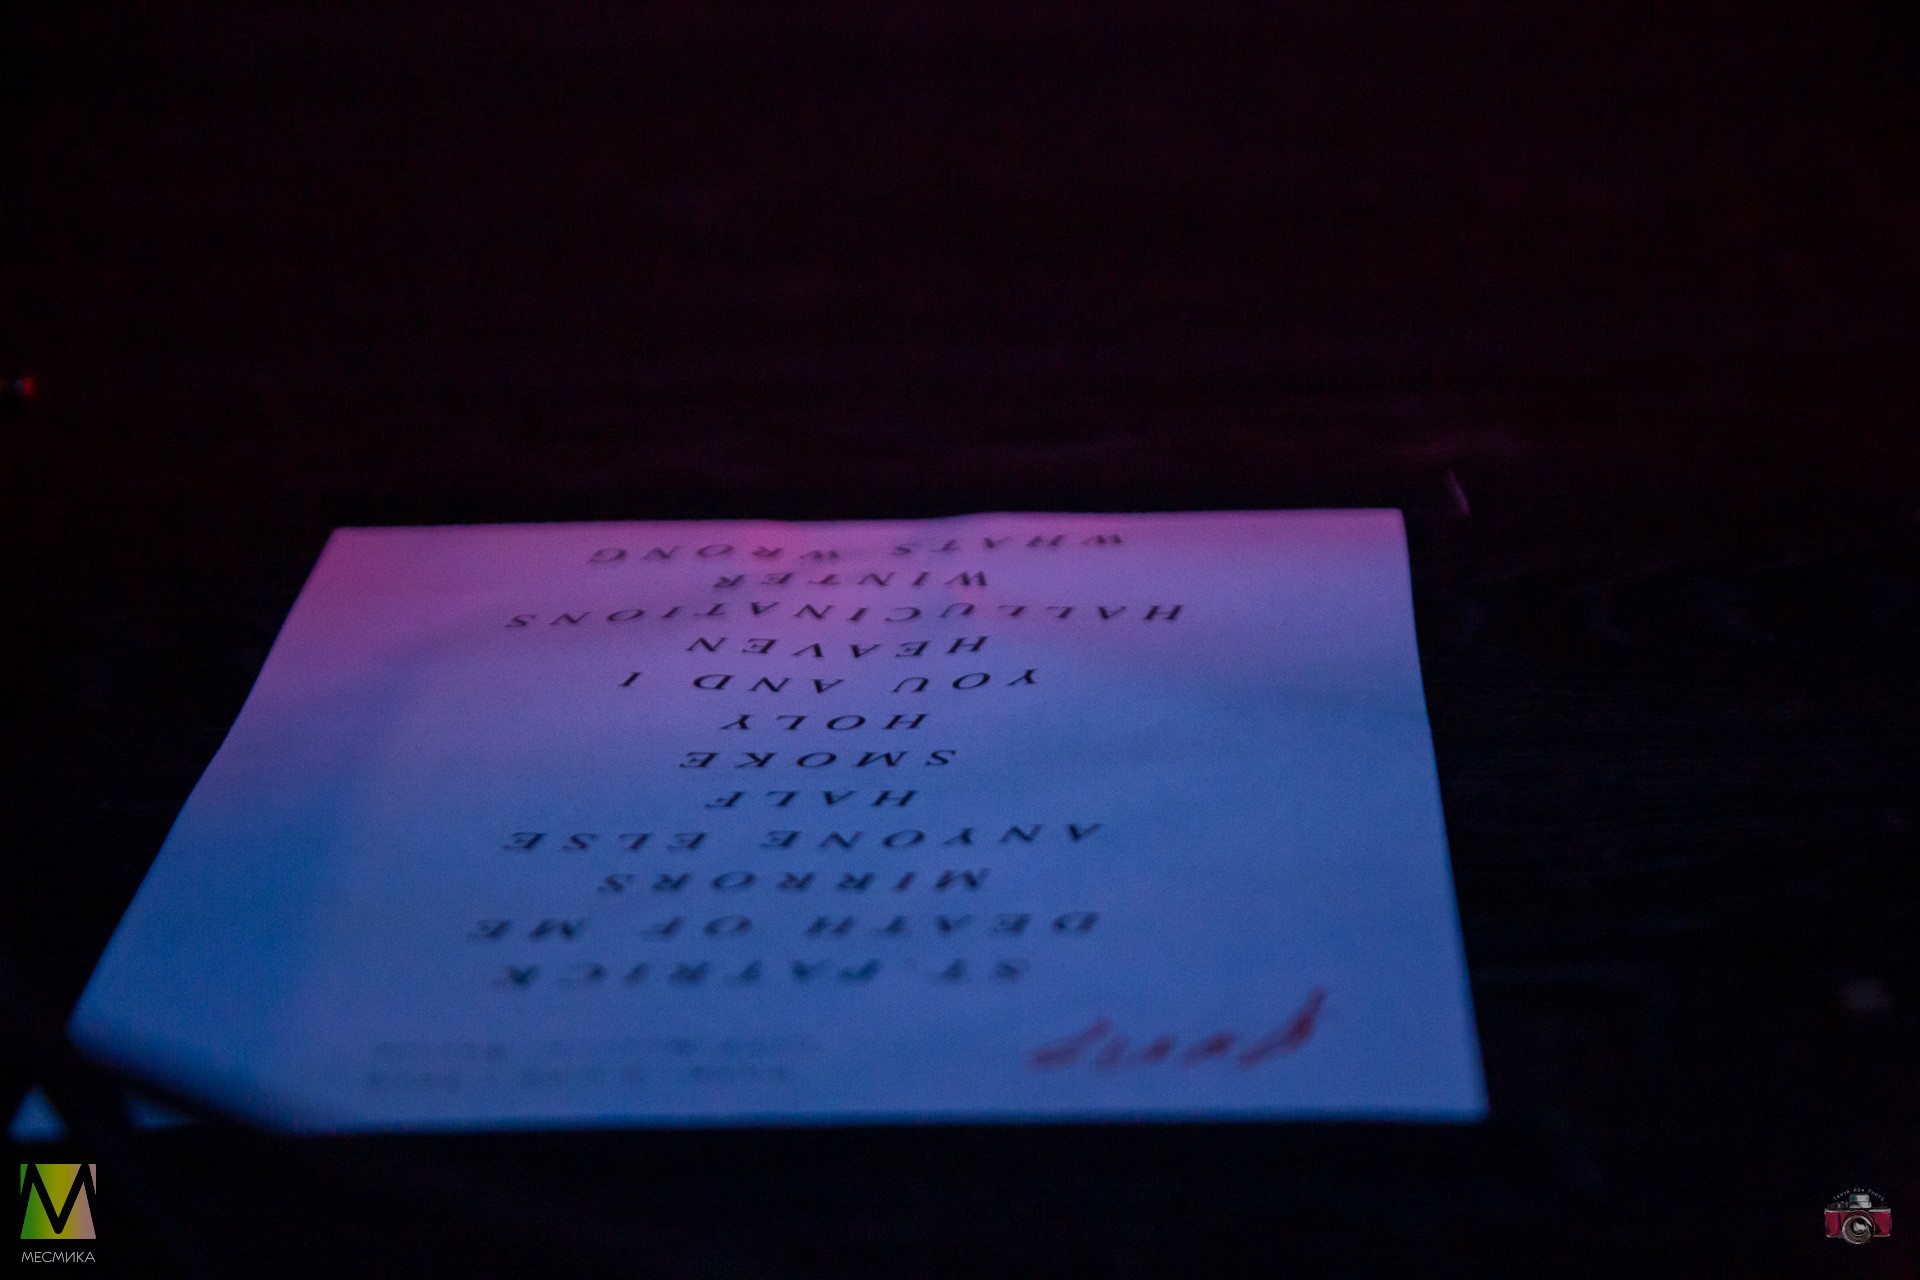 ST PATRICK
DEATH OF ME
MIRRORS
ANYONE ELSE
HALF
SMOKE
HOLY
YOU AND I
HEAVEN
HALLUCINATIONS
WINTER
WHATS WRONG
М
МЕСМИКА